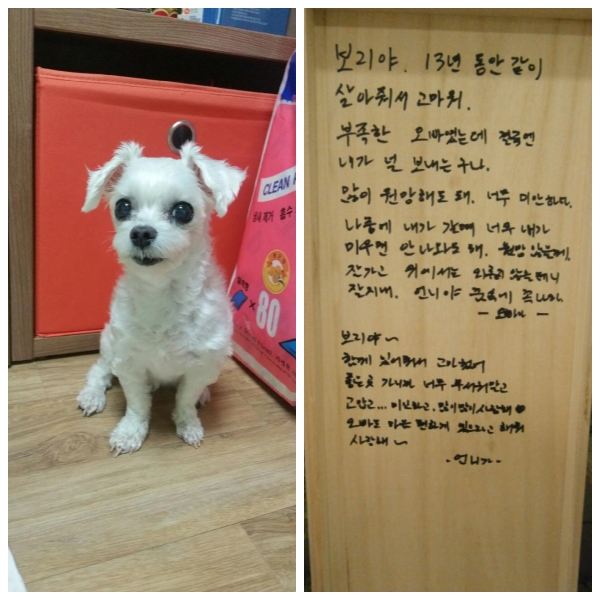 CLEAN
냄새 제거 흡수
× 80
보리야. 13년 동안 같이
살아줘서 고마워.
부족한 오빠였는데 결국엔
내가 널 보내는구나.
많이 원망해도 돼. 너무 미안하다.
나중에 내가 갈때 너무 내가
미우면 안나와도 돼. 원망 않을께.
잘가고 위에서는 외롭지 않을테니
잘지내. 언니야 꿈에 꼭나와.
- 오빠가 -
보리야~
함께 있어줘서 고마웠어
좋은곳 가니까 너무 무서워말고
고맙고... 미안하고. 많이많이 사랑해♥
오빠도 마음 편하게 있으라고 해줘
사랑해~
- 언니가 -